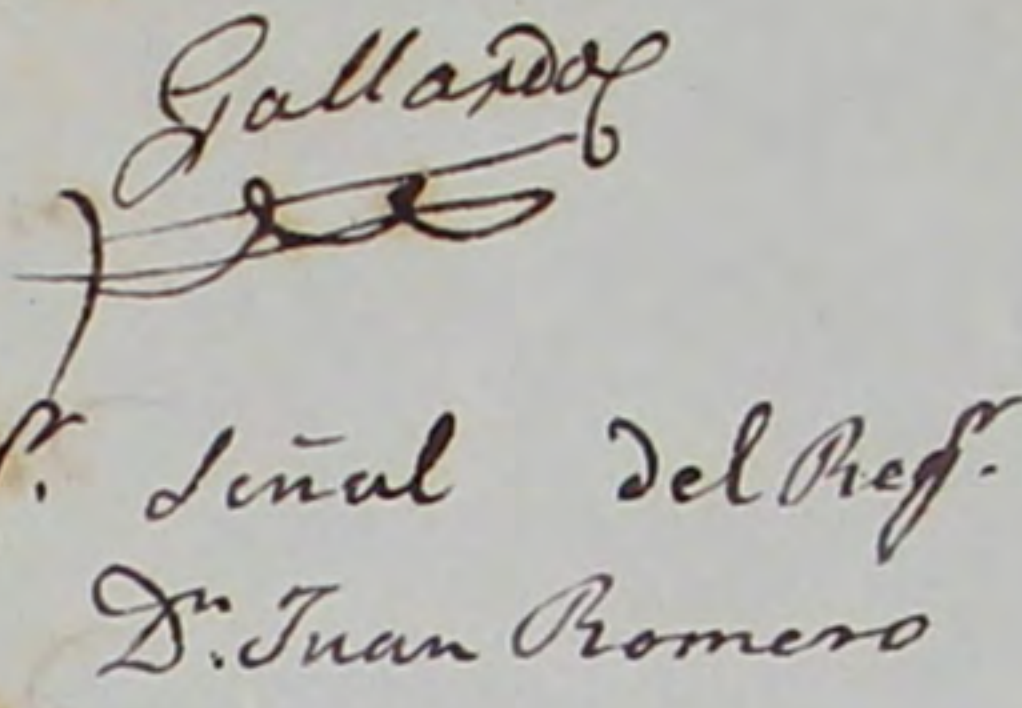 Gallardo
Señal del Regr.
Dn. Juan Romero